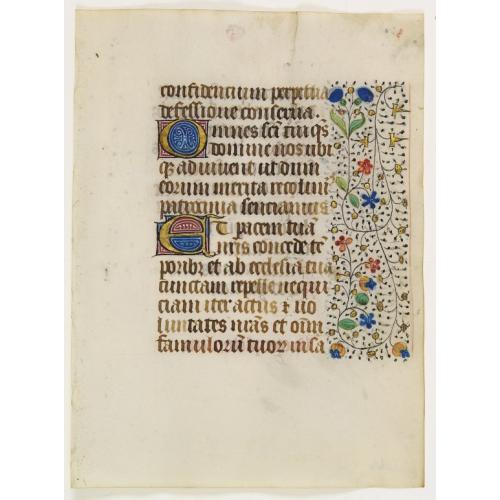 confidentium perpetua
defessione conserua.
Omnes sci tui q̄s
domine nos ubi
q̄ adiuuent ut dum
eorum merita recolim̄
patrocinia sentiamus
Et pacem tuā
nr̄is concede tē
poribꝰ et ab ecclesia tua
cunctam repelle nequi
ciam iter actus ⁊ uo
luntates nr̄as et om̄
famulorū tuoꝝ in sa